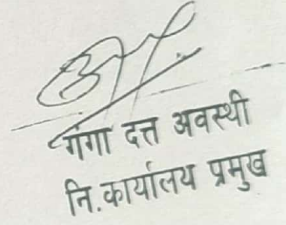 गंगा दत्त अवस्थी
नि.कार्यालय प्रमुख